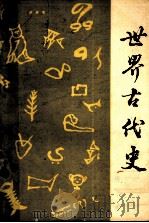 世界古代史